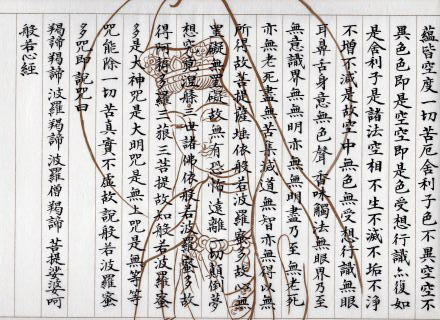 蘊皆空度一切苦厄舍利子色不異空空不
異色色即是空空即是色受想行識亦復如
是舍利子是諸法空相不生不滅不垢不淨
不增不減是故空中無色無受想行識無眼
耳鼻舌身意無色聲香味觸法無眼界乃至
無意識界無無明亦無無明盡乃至無老死
亦無老死盡無苦集滅道無智亦無得以無
所得故菩提薩埵依般若波羅蜜多故心無
罣礙無罣礙故無有恐怖遠離一切顛倒夢
想究竟涅槃三世諸佛依般若波羅蜜多故
得阿耨多羅三藐三菩提故知般若波羅蜜
多是大神咒是大明咒是無上咒是無等等
咒能除一切苦真實不虛故說般若波羅蜜
多咒即說咒曰
羯諦羯諦 波羅羯諦 波羅僧羯諦 菩提娑婆呵
般若心經